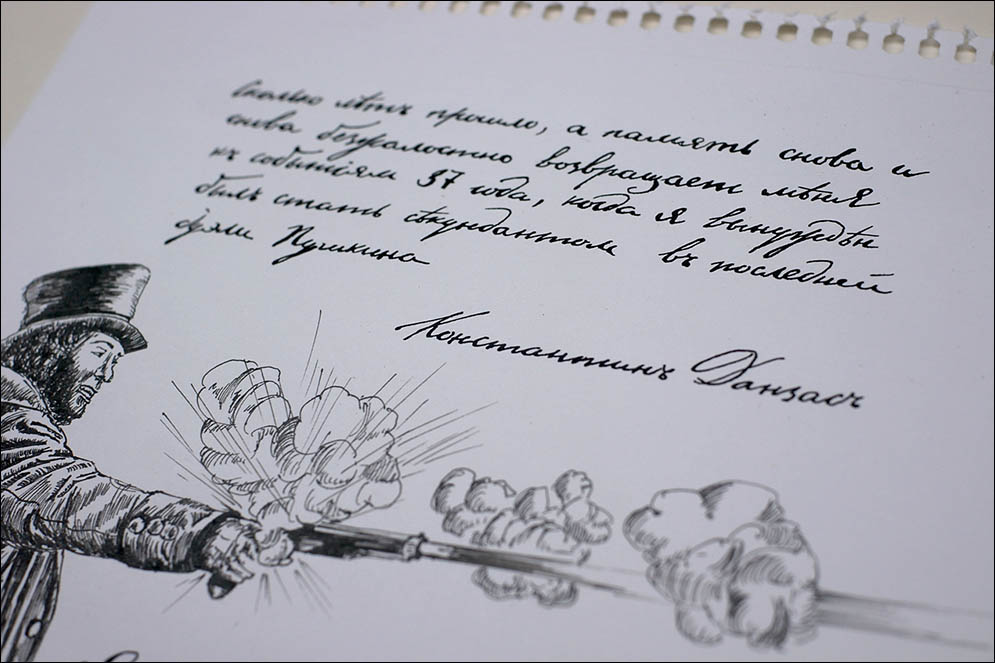 Сколько лѣтъ прошло, а память снова и
снова безжалостно возвращает мѣня
къ событіям 37 года, когда я вынуждѣн
былъ стать сѣкундантом въ последней
дуэли Пушкина
Константинъ Данзасъ